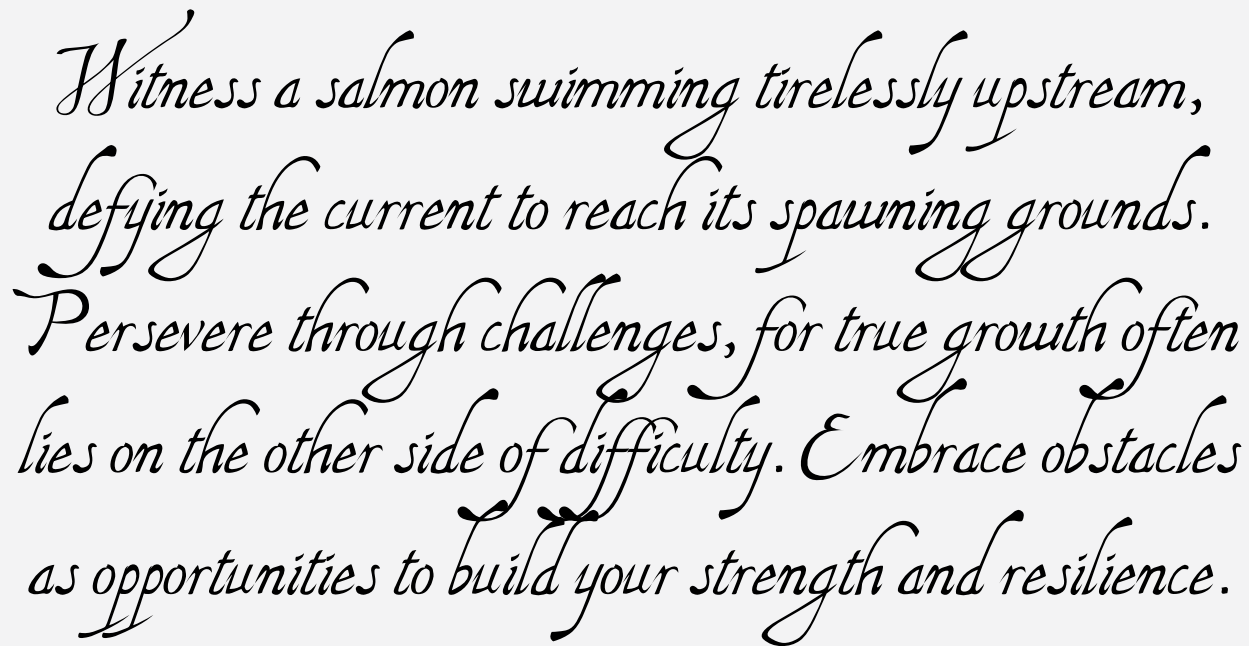 Witness a salmon swimming tirelessly upstream,
defying the current to reach its spawning grounds.
Persevere through challenges, for true growth often
lies on the other side of difficulty. Embrace obstacles
as opportunities to build your strength and resilience.